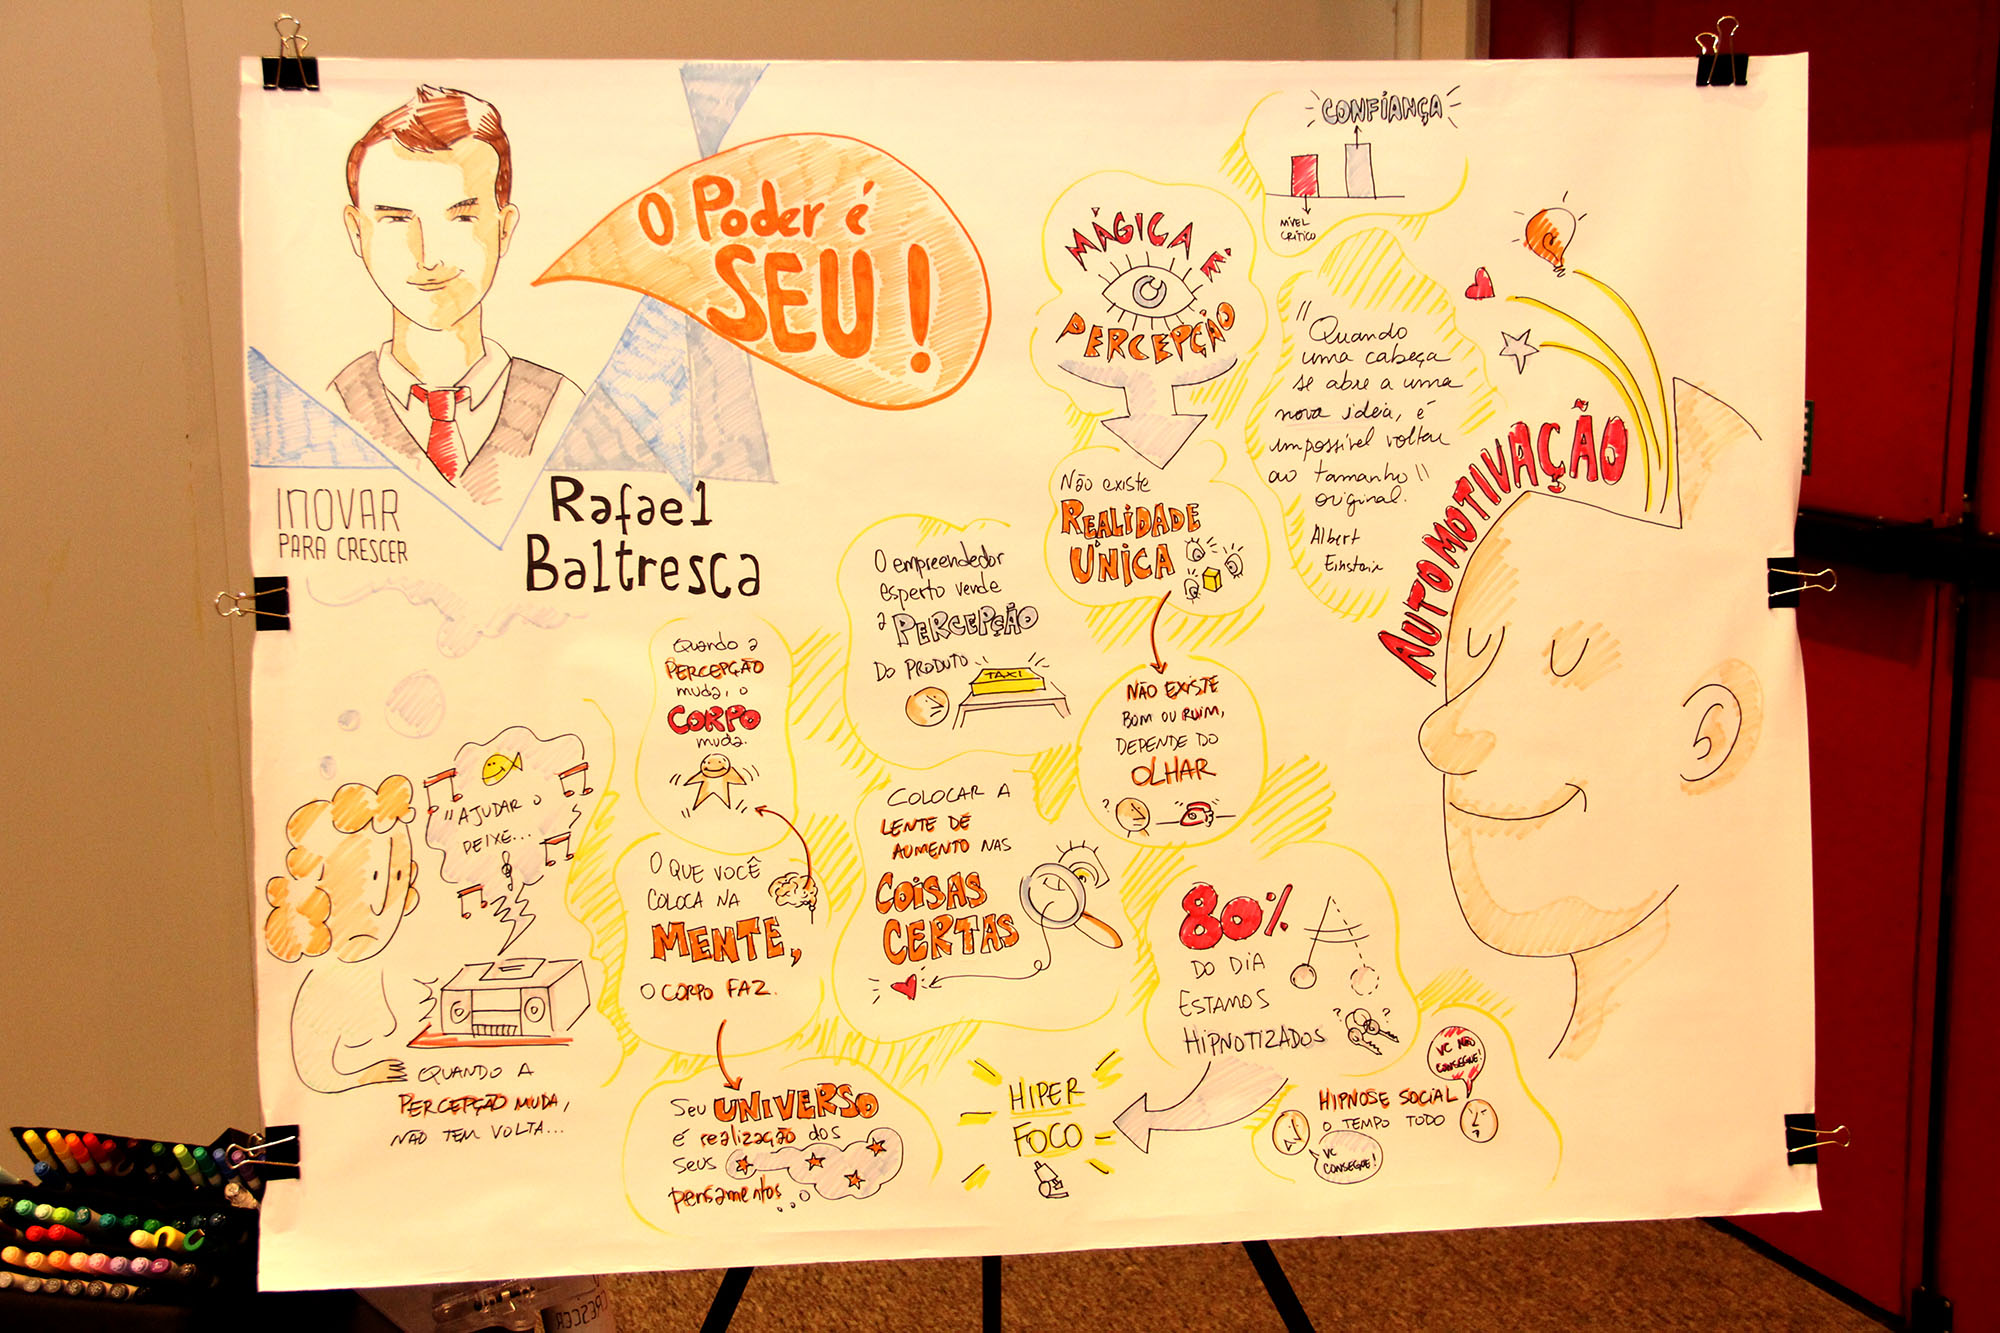 O Poder é
SEU!
INOVAR
PARA CRESCER
Rafael
Baltresca
"AJUDAR O
PEIXE...
QUANDO A
PERCEPÇÃO MUDA,
NÃO TEM VOLTA...
Quando a
PERCEPÇÃO
muda, o
CORPO
muda.
O QUE VOCÊ
COLOCA NA
MENTE,
O CORPO FAZ.
Seu UNIVERSO
é realização dos
seus
pensamentos...
O empreendedor
esperto vende
a PERCEPÇÃO
DO PRODUTO
TAXI
COLOCAR A
LENTE DE
AUMENTO NAS
COISAS
CERTAS
MÁGICA É
PERCEPÇÃO
Não existe
REALIDADE
ÚNICA
NÃO EXISTE
BOM OU RUIM,
DEPENDE DO
OLHAR
CONFIANÇA
NÍVEL
CRÍTICO
"Quando
uma cabeça
se abre a uma
nova ideia, é
impossível voltar
ao tamanho"
original.
Albert
Einstein
AUTOMOTIVAÇÃO
80%
DO DIA
ESTAMOS
HIPNOTIZADOS
HIPER
FOCO
VC NÃO
CONSEGUE!
HIPNOSE SOCIAL
O TEMPO TODO
VC
CONSEGUE!
CRESCER